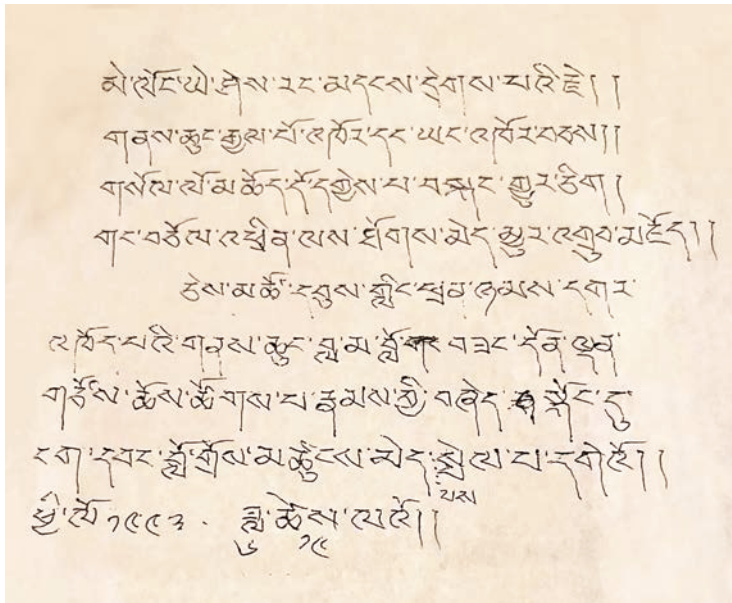 མེ་ལོང་ཡེ་ཤེས་རང་མདངས་དྲེགས་པའི་རྗེ། །
གནས་ཆུང་རྒྱལ་པོ་འཁོར་དང་ཡང་འཁོར་བཅས། །
གསོལ་ལོ་མཆོད་དོ་དགྱེས་པ་བསྐང་གྱུར་ཅིག །
གང་བཅོལ་འཕྲིན་ལས་ཐོགས་མེད་མྱུར་འགྲུབ་མཛོད། །
ཅེས་མཚོ་དབུས་གླིང་ཕྲན་ཉམས་དགར་
འཁོད་པའི་གནས་ཆུང་བླ་མ་བློ་བཟང་དོན་ལྡན་
གཙོས་ཆོས་ཚོགས་པ་རྣམས་ཀྱི་བཞེད་སྐོང་དུ
ངག་དབང་བློ་གྲོས་མཚུངས་མེད་སྤྲེལ་བ་དགེའོ། །
ཕྱི་ལོ་༡༩༩༣ . ཟླ་ཚེས་ལའོ། །
༦ ༡༩